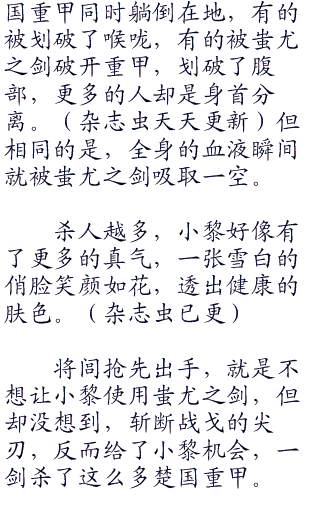 国重甲同时躺倒在地，有的
被划破了喉咙，有的被蚩尤
之剑破开重甲，划破了腹
部，更多的人却是身首分
离。（杂志虫天天更新）但
相同的是，全身的血液瞬间
就被蚩尤之剑吸取一空。
杀人越多，小黎好像有
了更多的真气，一张雪白的
俏脸笑颜如花，透出健康的
肤色。（杂志虫已更）
将闾抢先出手，就是不
想让小黎使用蚩尤之剑，但
却没想到，斩断战戈的尖
刃，反而给了小黎机会，一
剑杀了这么多楚国重甲。